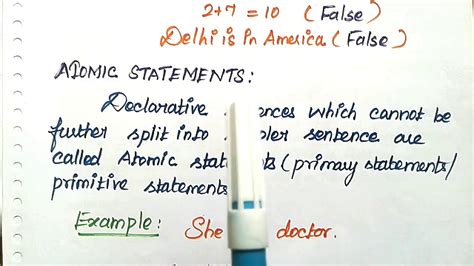 2+7 = 10 (False)
Delhi is in America (False)
ATOMIC STATEMENTS:
Declarative which cannot be
further split into sentence are
called Atomic (primary statements/
primitive statements
Example: She doctor.